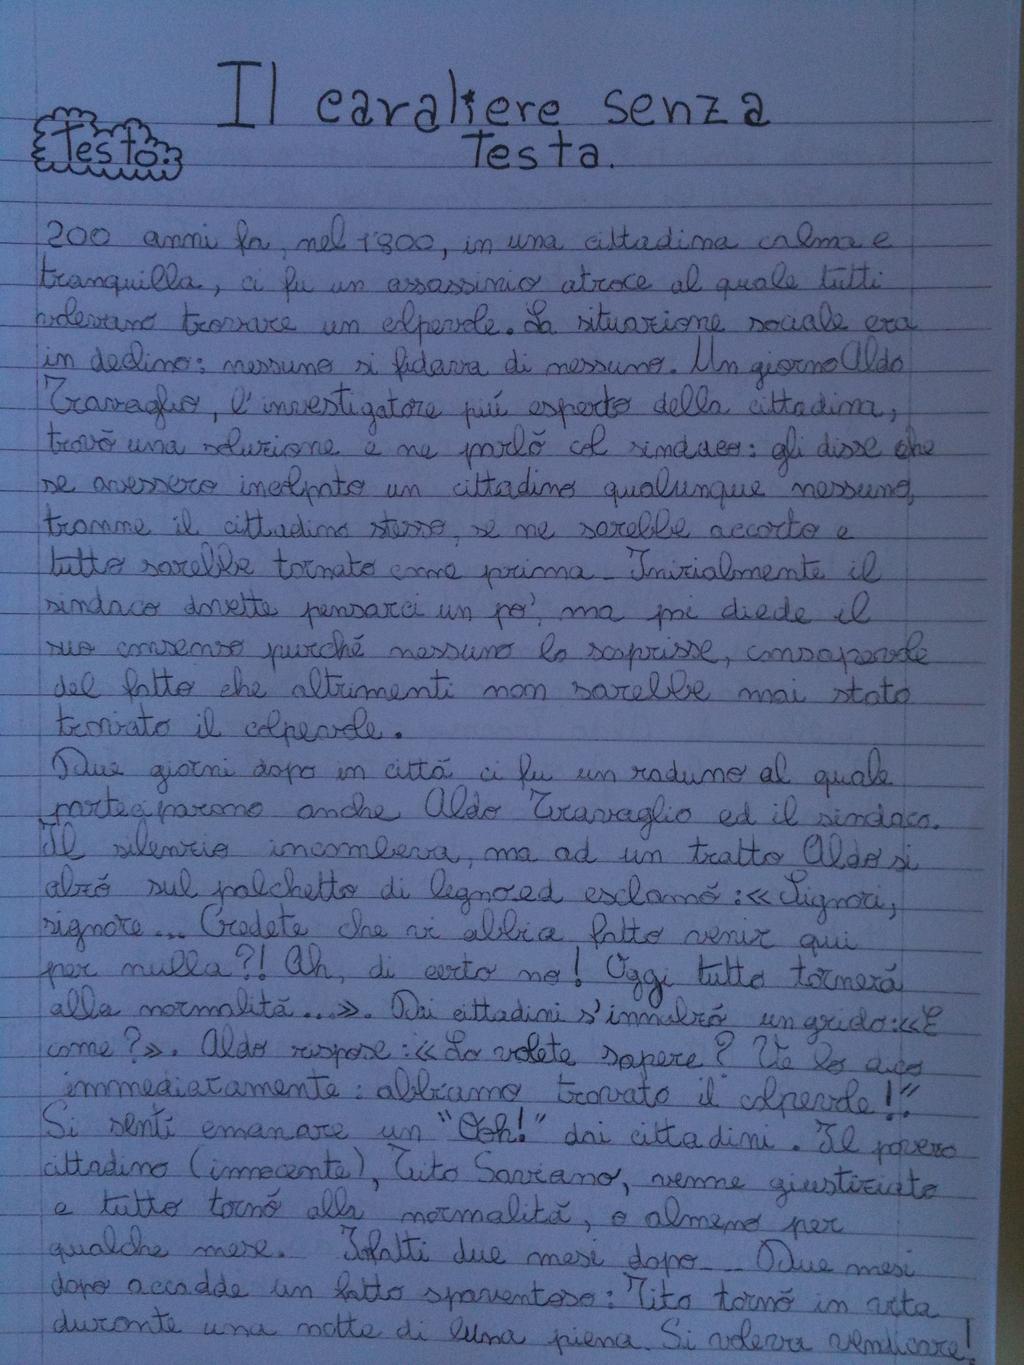 Il cavaliere senza
Testa.
Testo:
200 anni fa, nel 1800, in una cittadina calma e
tranquilla, ci fu un assassinio atroce al quale tutti
volevano trovare un colpevole. La situazione sociale era
in declino: nessuno si fidava di nessuno. Un giorno Aldo
Travaglio, l'investigatore più esperto della cittadina,
trovò una soluzione e ne parlò col sindaco: gli disse che
se avessero incolpato un cittadino qualunque nessuno,
tranne il cittadino stesso, se ne sarebbe accorto e
tutto sarebbe tornato come prima. Inizialmente il
sindaco dovette pensarci un po', ma poi diede il
suo consenso purché nessuno lo scoprisse, consapevole
del fatto che altrimenti non sarebbe mai stato
trovato il colpevole.
Due giorni dopo in città ci fu un raduno al quale
parteciparono anche Aldo Travaglio ed il sindaco.
Il silenzio incombeva, ma ad un tratto Aldo si
alzò sul palchetto di legno ed esclamò: «Signori,
signore... Credete che vi abbia fatto venir qui
per nulla?! Ah, di certo no! Oggi tutto tornerà
alla normalità...». Dai cittadini s'innalzò un grido: «E
come?». Aldo rispose: «Lo volete sapere? Ve lo dico
immediatamente: abbiamo trovato il colpevole!"
Si sentì emanare un "Ooh!" dai cittadini. Il povero
cittadino (innocente), Tito Saviano, venne giustiziato
e tutto tornò alla normalità, o almeno per
qualche mese. Infatti due mesi dopo... Due mesi
dopo accadde un fatto spaventoso: Tito tornò in vita
durante una notte di luna piena. Si voleva vendicare!